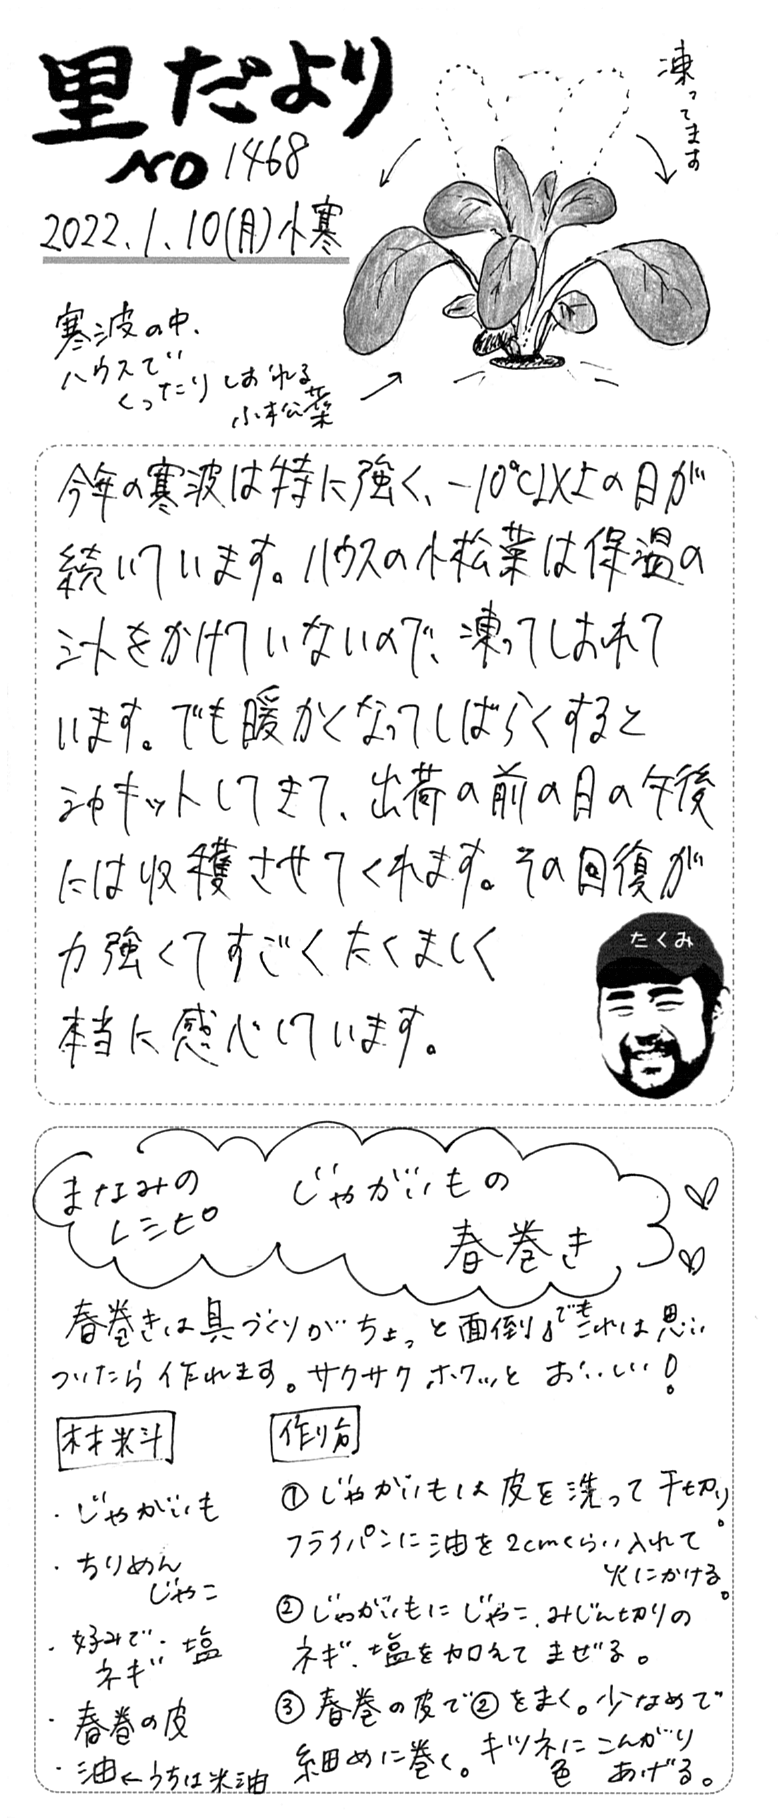 里だより
NO 1468
2022.1.10(月)小寒
凍ってます
寒波の中、
ハウスで
くったりしおれる
小松菜
今年の寒波は特に強く、-10℃以下の日が
続いています。ハウスの小松菜は保温の
シートをかけていないので、凍ってしおれて
います。でも暖かくなってしばらくすると
シャキットしてきて、出荷の前の日の午後
には収穫させてくれます。その回復が
力強くてすごくたくましく
本当に感心しています。
たくみ
まなみの
レシピ
じゃがいもの
春巻き
春巻きは具づくりがちょっと面倒。でもこれは思い
ついたら作れます。サクサクホクッとおいしい!
材料
・じゃがいも
・ちりめん
じゃこ
・好みで・塩
ネギ
・春巻の皮
・油←うちは米油
作り方
①じゃがいもは皮を洗って千切り。
フライパンに油を2cmくらい入れて
火にかける。
②じゃがいもにじゃこ、みじん切りの
ネギ、塩を加えてまぜる。
③春巻の皮で②をまく。少なめで
細めに巻く。キツネ色にこんがり
あげる。